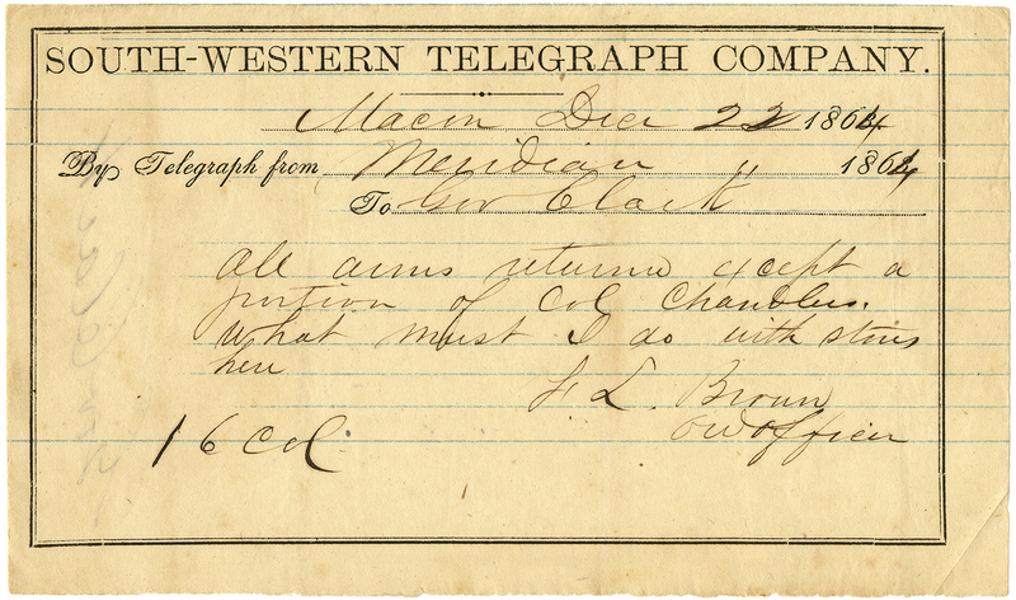 SOUTH-WESTERN TELEGRAPH COMPANY.
Macon Decr 22 1864
By Telegraph from Meridian " 1864
To Gov Clark
All arms returnd except a
portion of Col Chandlers.
What must I do with stores
here
L. Brown
Officer
16 Col